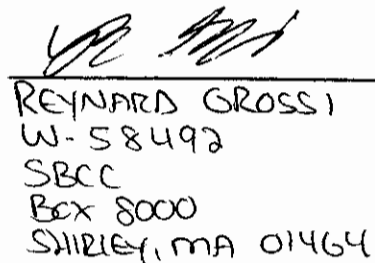 REYNARD GROSSI
W-58492
SBCC
Box 8000
SHIRLEY, MA 01464